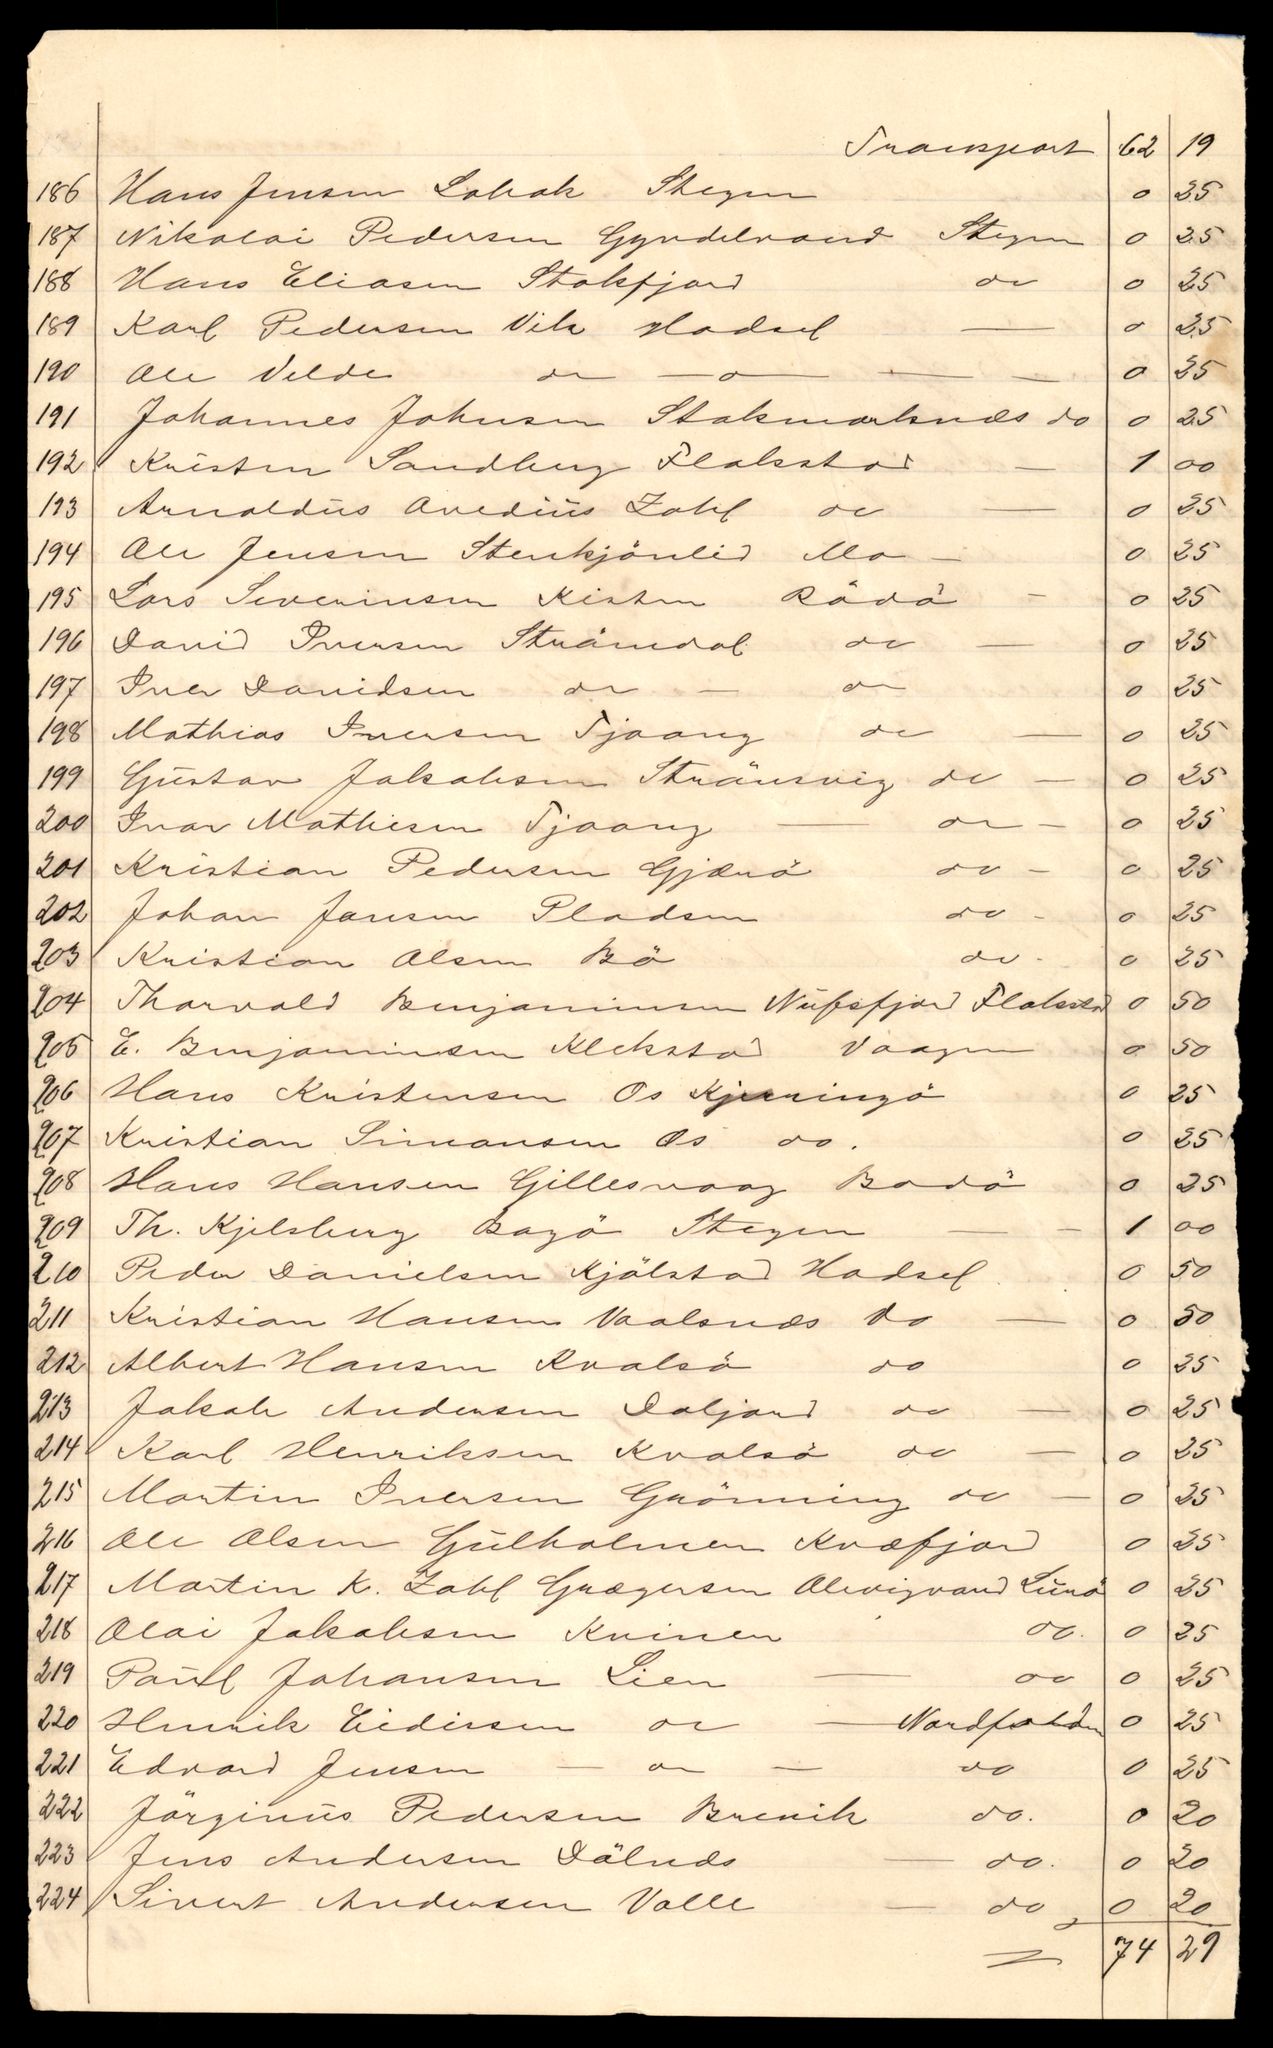 Transport 62 19
186 Hans Jensen Lokak Stegen 0 25
187 Nikolai Pedersen Gyndelvand Stegen 0 25
188 Hans Eliasen Stokfjord do 0 25
189 Karl Pedersen Vik Hadsel — 0 25
190 Ole Velde do — o — — — 0 25
191 Johannes Johnsen Stokmarknæs do 0 25
192 Kristen Sandberg Flakstad — 1 00
193 Arnoldus Avedius Zahl do — 0 25
194 Ole Jensen Stenkjönlid Mo — 0 25
195 Lars Severinsen Kisten Rödö - 0 25
196 David Iversen Strömdal do — 0 25
197 Iver Davidsen do — do 0 25
198 Mathias Iversen Tjaang do — 0 25
199 Gustav Jakobsen Strånsvig do — 0 25
200 Ivar Mathisen Tjaang — do — 0 25
201 Kristian Pedersen Gjærö do - 0 25
202 Johan Jansen Pladsen do - 0 25
203 Kristian Olsen Bö do - 0 25
204 Thorvald Benjaminsen Nufsfjord Flakstad 0 50
205 E. Benjaminsen Klekstad Vaagen 0 50
206 Hans Kristensen Os Kjerringö 0 25
207 Kristian Simonsen Os do. 0 25
208 Hans Hansen Gillesvaag Bodö 0 25
209 Th. Kjelsberg Bogö Stegen — - 1 00
210 Peder Danielsen Kjölstad Hadsel 0 50
211 Kristian Hansen Vaalsnæs do — 0 50
212 Albert Hansen Kvalsö do 0 25
213 Jakob Andersen Daljord do — 0 25
214 Karl Henriksen Kvalsö do — 0 25
215 Martin Iversen Grönning do — 0 25
216 Ole Olsen Gulholmen Kvæfjord 0 25
217 Martin K. Zahl Grægersen Olevigvand Lurö 0 25
218 Olai Jakobsen Kvinen do. 0 25
219 Paul Johansen Lien — do 0 25
220 Henrik Eidissen do — Nordfolden 0 25
221 Edvard Jensen — do — do 0 25
222 Jörginus Pedersen Brevik do. 0 20
223 Jens Andersen Dålnæs — do. 0 20
224 Sivert Andersen Valle — do 0 20
74 29